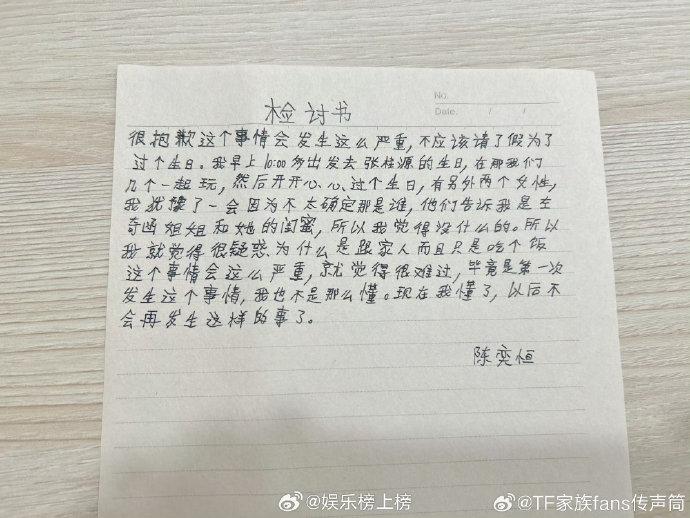 No.
Date. / /
检讨书
很抱歉这个事情会发生这么严重，不应该请了假为了
过个生日。我早上10:00多出发去张桂源的生日，在那我们
几个一起玩，然后开开心心过个生日，有另外两个女性，
我犹豫了一会因为不太确定那是谁，他们告诉我是左
奇函姐姐和她的闺蜜，所以我觉得没什么的。所以
我就觉得很疑惑为什么是跟家人而且只是吃个饭
这个事情会这么严重，就觉得很难过，毕竟是第一次
发生这个事情，我也不是那么懂。现在我懂了，以后不
会再发生这样的事了。
陈奕恒
@娱乐榜上榜
@TF家族fans传声筒